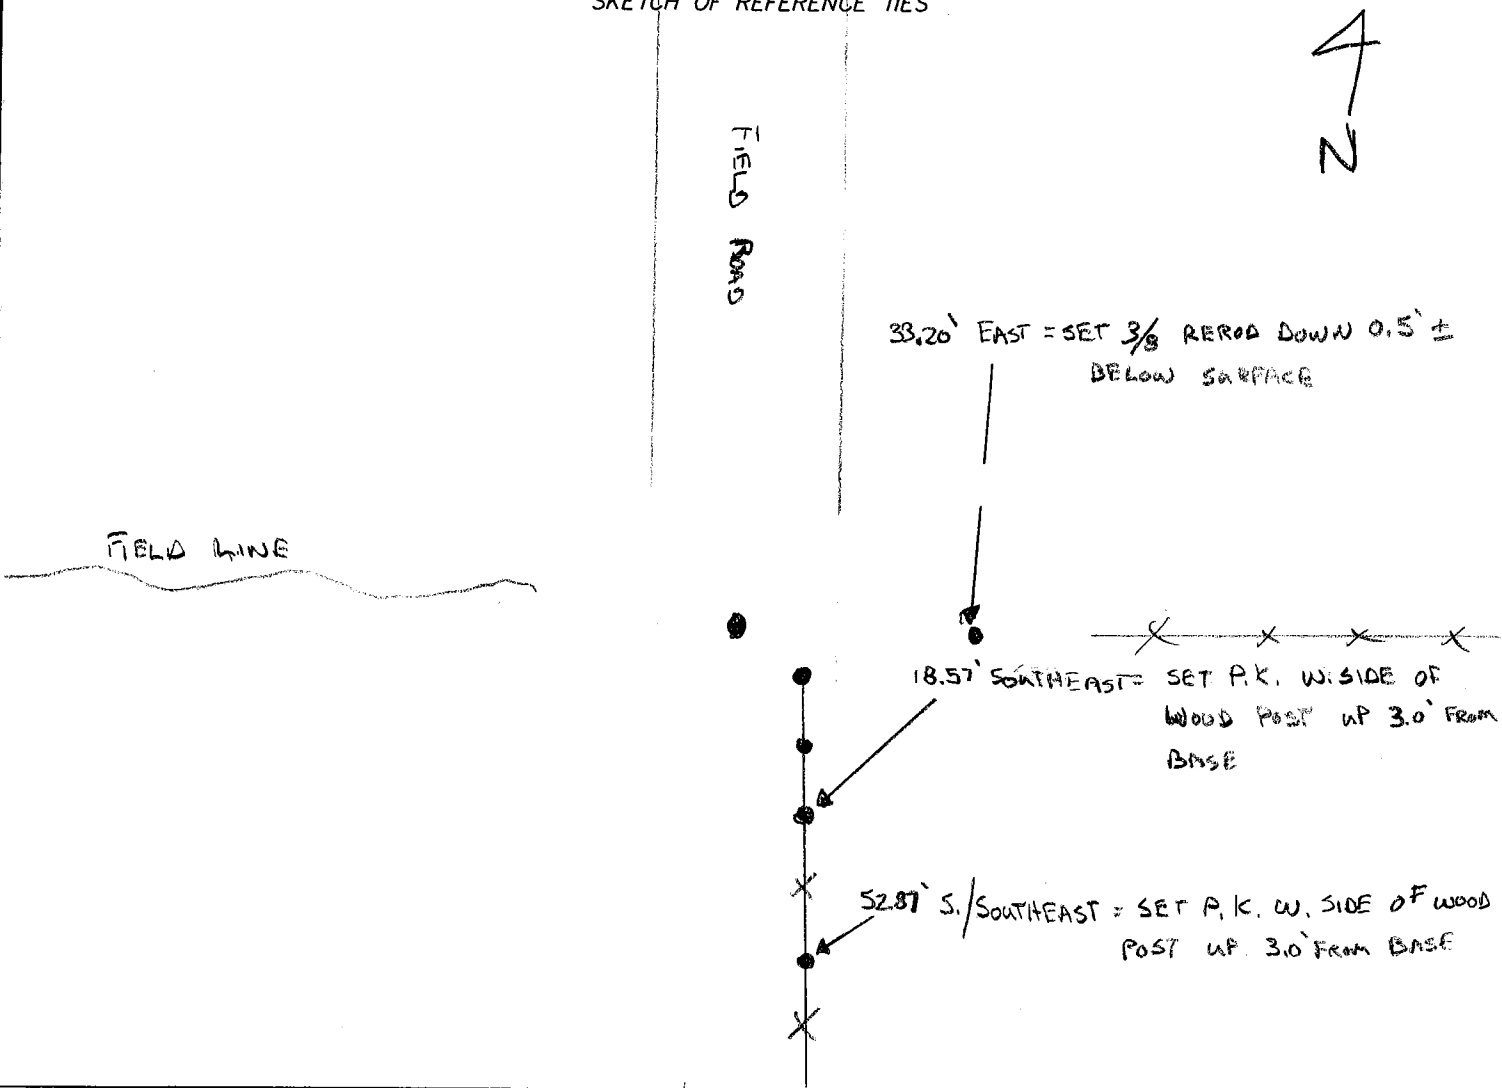 SKETCH OF REFERENCE TIES
N
FIELD ROAD
33.20' EAST = SET 3/8 REROD DOWN 0.5' ±
BELOW SURFACE
FIELD LINE
18.57' SOUTHEAST = SET P.K. W. SIDE OF
WOOD POST UP 3.0' FROM
BASE
52.87' S./SOUTHEAST = SET P.K. W. SIDE OF WOOD
POST UP 3.0' FROM BASE